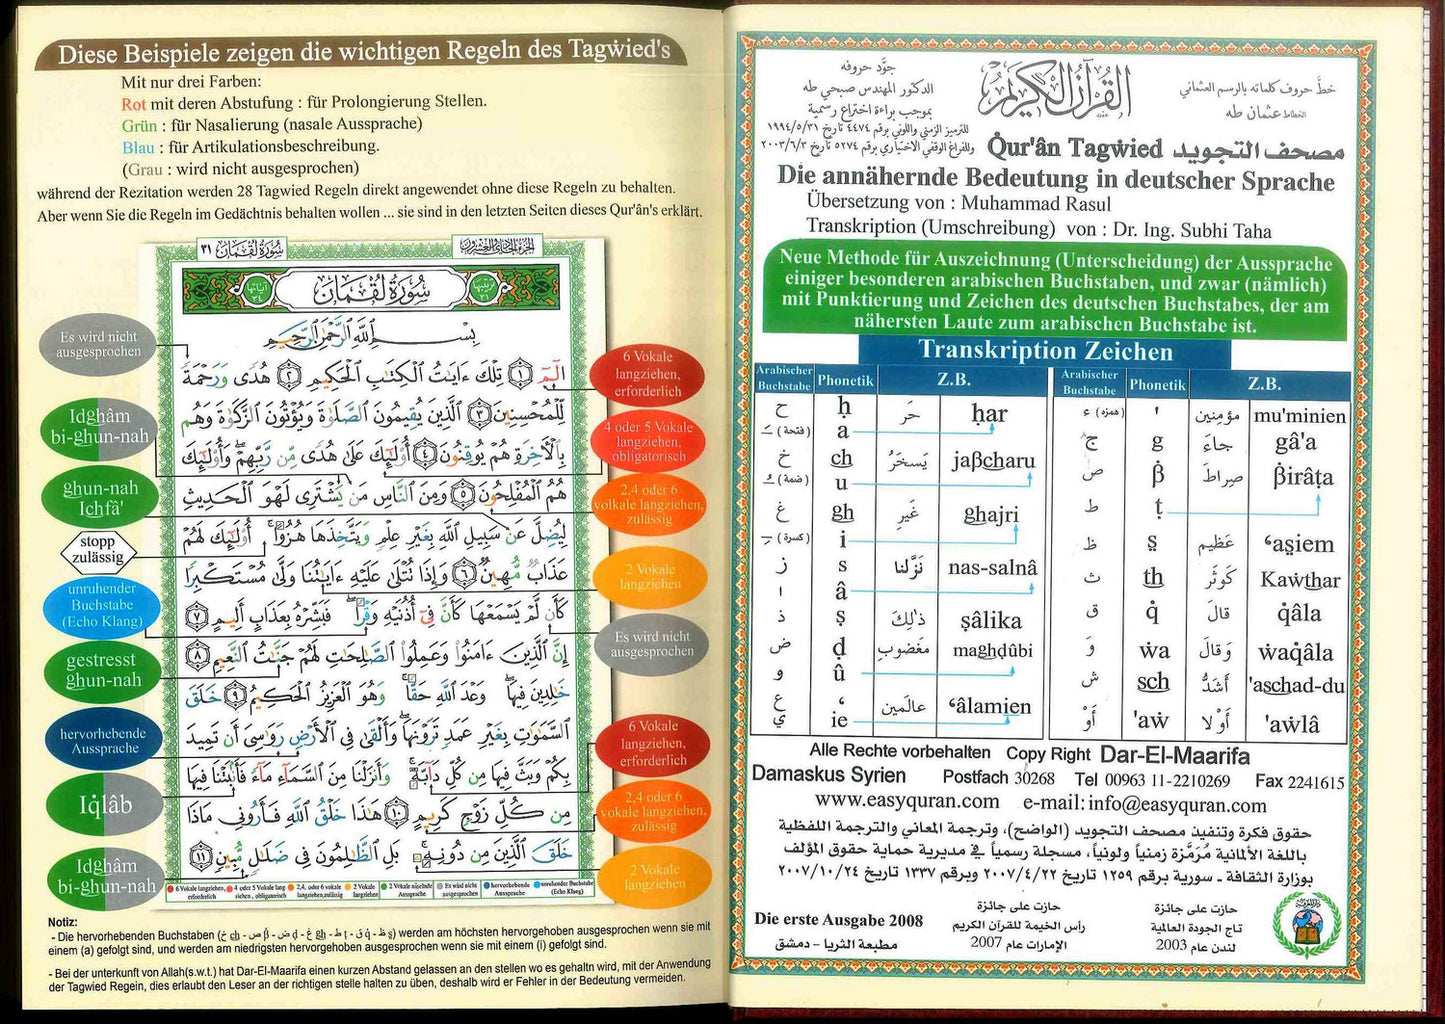 Diese Beispiele zeigen die wichtigen Regeln des Tagẇied's
Mit nur drei Farben:
Rot mit deren Abstufung : für Prolongierung Stellen.
Grün : für Nasalierung (nasale Aussprache)
Blau : für Artikulationsbeschreibung.
(Grau : wird nicht ausgesprochen)
während der Rezitation werden 28 Tagwied Regeln direkt angewendet ohne diese Regeln zu behalten.
Aber wenn Sie die Regeln im Gedächtnis behalten wollen ... sie sind in den letzten Seiten dieses Qur'ân's erklärt.
سُورَةُ لُقْمَان ٣١
الجزء الحادي والعشرون
ترتيبها ٣١
سُورَةُ لُقْمَان
آياتها ٣٤
بِسْمِ ٱللَّهِ ٱلرَّحْمَٰنِ ٱلرَّحِيمِ
الٓمٓ ١ تِلْكَ ءَايَٰتُ ٱلْكِتَٰبِ ٱلْحَكِيمِ ٢ هُدًى وَرَحْمَةً
لِّلْمُحْسِنِينَ ٣ ٱلَّذِينَ يُقِيمُونَ ٱلصَّلَوٰةَ وَيُؤْتُونَ ٱلزَّكَوٰةَ وَهُم
بِٱلْأَخِرَةِ هُمْ يُوقِنُونَ ٤ أُو۟لَٰٓئِكَ عَلَىٰ هُدًى مِّن رَّبِّهِمْ ۖ وَأُو۟لَٰٓئِكَ
هُمُ ٱلْمُفْلِحُونَ ٥ وَمِنَ ٱلنَّاسِ مَن يَشْتَرِى لَهْوَ ٱلْحَدِيثِ
لِيُضِلَّ عَن سَبِيلِ ٱللَّهِ بِغَيْرِ عِلْمٍ وَيَتَّخِذَهَا هُزُوًا ۚ أُو۟لَٰٓئِكَ لَهُمْ
عَذَابٌ مُّهِينٌ ٦ وَإِذَا تُتْلَىٰ عَلَيْهِ ءَايَٰتُنَا وَلَّىٰ مُسْتَكْبِرًا
كَأَن لَّمْ يَسْمَعْهَا كَأَنَّ فِىٓ أُذُنَيْهِ وَقْرًا ۖ فَبَشِّرْهُ بِعَذَابٍ أَلِيمٍ ٧
إِنَّ ٱلَّذِينَ ءَامَنُوا۟ وَعَمِلُوا۟ ٱلصَّٰلِحَٰتِ لَهُمْ جَنَّٰتُ ٱلنَّعِيمِ ٨
خَٰلِدِينَ فِيهَا ۖ وَعْدَ ٱللَّهِ حَقًّا ۚ وَهُوَ ٱلْعَزِيزُ ٱلْحَكِيمُ ٩ خَلَقَ
ٱلسَّمَٰوَٰتِ بِغَيْرِ عَمَدٍ تَرَوْنَهَا ۖ وَأَلْقَىٰ فِى ٱلْأَرْضِ رَوَٰسِىَ أَن تَمِيدَ
بِكُمْ وَبَثَّ فِيهَا مِن كُلِّ دَآبَّةٍ ۚ وَأَنزَلْنَا مِنَ ٱلسَّمَآءِ مَآءً فَأَنۢبَتْنَا فِيهَا
مِن كُلِّ زَوْجٍ كَرِيمٍ ١٠ هَٰذَا خَلْقُ ٱللَّهِ فَأَرُونِى مَاذَا
خَلَقَ ٱلَّذِينَ مِن دُونِهِۦ ۚ بَلِ ٱلظَّٰلِمُونَ فِى ضَلَٰلٍ مُّبِينٍ ١١
Es wird nicht
ausgesprochen
Idghâm
bi-ghun-nah
ghun-nah
Ichfâ'
stopp
zulässig
unruhender
Buchstabe
(Echo Klang)
gestresst
ghun-nah
hervorhebende
Aussprache
Iq̇lâb
Idghâm
bi-ghun-nah
6 Vokale
langziehen,
erforderlich
4 oder 5 Vokale
langziehen,
obligatorisch
2,4 oder 6
volkale langziehen,
zulässig
2 Vokale
langziehen
Es wird nicht
ausgesprochen
6 Vokale
langziehen,
erforderlich
2,4 oder 6
vokale langziehen,
zulässig
2 Vokale
langziehen
6 Vokale langziehen, erforderlich
4 oder 5 Vokale lang ziehen , obligatorisch
2,4, oder 6 vokale langziehen,zulässig
2 Vokale langziehen
Es wird nicht ausgesprochen
hervorhebende Aussprache
unruhender Buchstabe (Echo Klang)
Notiz:
- Die hervorhebenden Buchstaben (خ ch - ص β - ض ḍ - غ gh - ط ṭ - ق q̇ - ظ ṣ) werden am höchsten hervorgehoben ausgesprochen wenn sie mit
einem (a) gefolgt sind, und werden am niedrigsten hervorgehoben ausgesprochen wenn sie mit einem (i) gefolgt sind.
- Bei der unterkunft von Allah(s.w.t.) hat Dar-El-Maarifa einen kurzen Abstand gelassen an den stellen wo es gehaltn wird, mit der Anwendung
der Tagwied Regein, dies erlaubt den Leser an der richtigen stelle halten zu üben, deshalb wird er Fehler in der Bedeutung vermeiden.
جوّد حروفه
الدكتور المهندس صبحي طه
بموجب براءة اختراع رسمية
للترميز الزمني واللوني برقم ٤٤٧٤ تاريخ ١٩٩٤/٥/٣١
وللفراغ الوقفي الاختياري برقم ٥٢٧٤ تاريخ ٢٠٠٣/٦/٣
القرآن الكريم
خطَّ حروف كلماته بالرسم العثماني
الخطاط عثمان طه
Q̇ur'ân Tagẇied مصحف التجويد
Die annähernde Bedeutung in deutscher Sprache
Übersetzung von : Muhammad Rasul
Transkription (Umschreibung) von : Dr. Ing. Subhi Taha
Neue Methode für Auszeichnung (Unterscheidung) der Aussprache
einiger besonderen arabischen Buchstaben, und zwar (nämlich)
mit Punktierung und Zeichen des deutschen Buchstabes, der am
nähersten Laute zum arabischen Buchstabe ist.
Transkription Zeichen
Arabischer Buchstabe Phonetik Z.B.
ح ḥ حَر ḥar
(فتحة) a
خ ch يَسخَرُ jaβcharu
(ضمة) u
غ gh غَيرِ ghajri
(كسرة) i
ز s نَزَّلنا nas-salnâ
ا â
ذ ṣ ذٰلِكَ ṣâlika
ض ḍ مَغضُوبِ maghḍûbi
و û
ع ʻ عالَمين ʻâlamien
ي ie
Arabischer Buchstabe Phonetik Z.B.
ء (همزه) ' مؤمِنين mu'minien
ج g جاءَ gâ'a
ص β̇ صِراطَ β̇irâṭa
ط ṭ
ظ ṣ عَظيم ʻaṣiem
ث th كَوثَر Kaẇthar
ق q̇ قالَ q̇âla
وَ ẇa وَقالَ ẇaqâla
ش sch أَشَدُّ 'aschad-du
أَوْ 'aẇ أَوْلا 'aẇlâ
Alle Rechte vorbehalten Copy Right Dar-El-Maarifa
Damaskus Syrien Postfach 30268 Tel 00963 11-2210269 Fax 2241615
www.easyquran.com e-mail: info@easyquran.com
حقوق فكرة وتنفيذ مصحف التجويد (الواضح)، وترجمة المعاني والترجمة اللفظية
باللغة الألمانية مُرَمَّزة زمنياً ولونياً، مسجلة رسمياً في مديرية حماية حقوق المؤلف
بوزارة الثقافة - سورية برقم ١٢٥٩ تاريخ ٢٠٠٧/٤/٢٢ وبرقم ١٣٣٧ تاريخ ٢٠٠٧/١٠/٢٤
Die erste Ausgabe 2008
مطبعة الثريا – دمشق
حازت على جائزة
رأس الخيمة للقرآن الكريم
الإمارات عام 2007
حازت على جائزة
تاج الجودة العالمية
لندن عام 2003